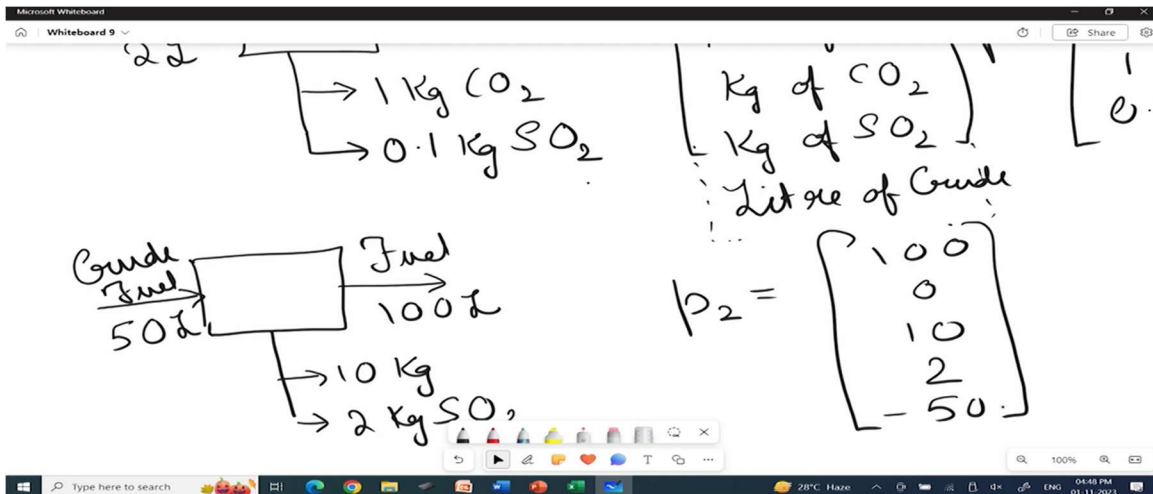 Microsoft Whiteboard
Whiteboard 9
Share
2L
1 Kg CO2
0.1 Kg SO2
Kg of CO2
Kg of SO2
Litre of Crude
1
0.
Crude
Fuel
50L
Fuel
100L
10 Kg
2 Kg SO2
p2 =
100
0
10
2
-50
100%
Type here to search
28°C Haze
ENG
04:48 PM
01-11-2023